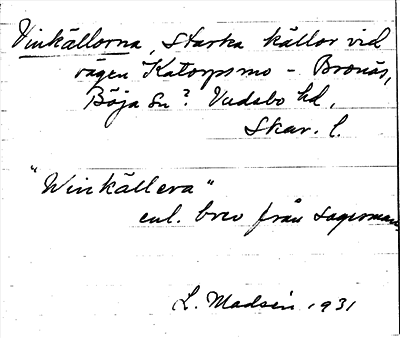 Vinkällorna, starka källor vid
vägen Katorpsmo - Bronäs,
Böja Sn? Vadsbo hd,
Skar. l.
"Winkällera"
enl. brev från sagesman.
L. Madsén 1931